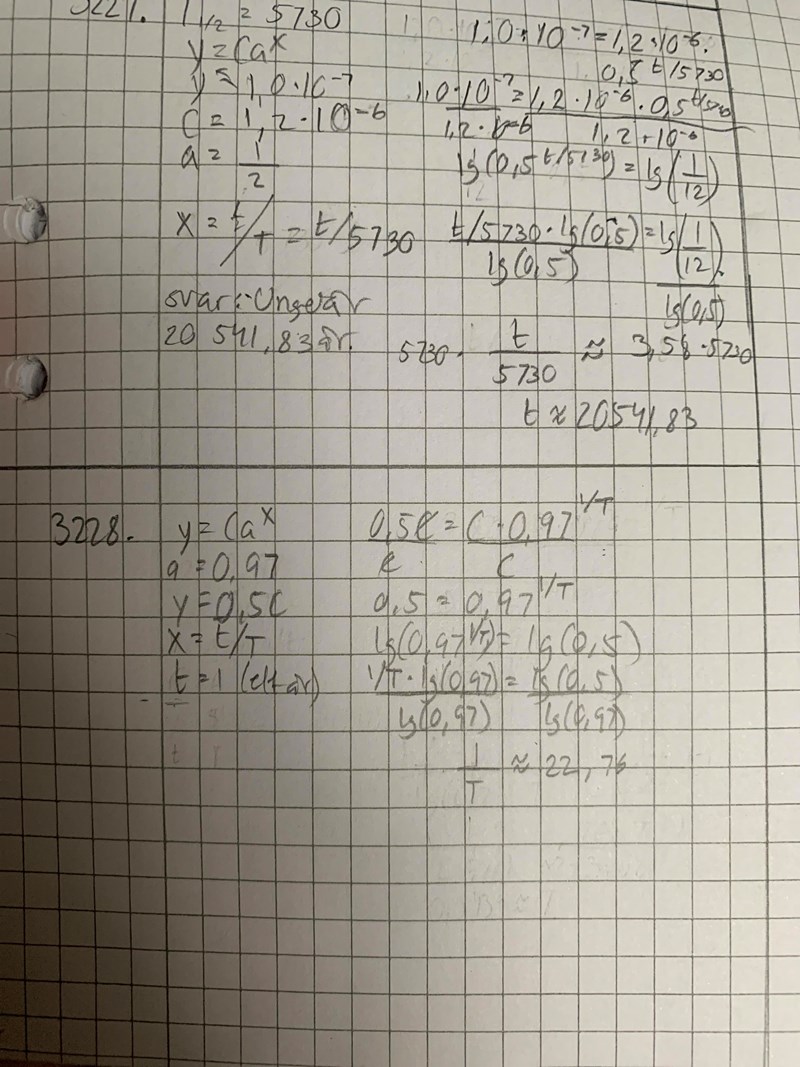 3227. T1/2 = 5730
y = Ca^x
y = 1,0·10^-7
C = 1,2·10^-6
a = 1/2
x = t/T = t/5730
svar: Ungefär
20 541,83 år.
1,0·10^-7 = 1,2·10^-6 ·
0,5^t/5730
1,0·10^-7/1,2·10^-6 = 1,2·10^-6·0,5^t/5730/1,2·10^-6
lg(0,5^t/5730) = lg(1/12)
t/5730·lg(0,5)/lg(0,5) = lg(1/12)/lg(0,5)
5730· t/5730 ≈ 3,58·5730
t ≈ 20541,83
3228. y = Ca^x
a = 0,97
y = 0,5C
x = t/T
t = 1 (ett år)
0,5C/C = C·0,97^1/T/C
0,5 = 0,97^1/T
lg(0,97^1/T) = lg(0,5)
1/T·lg(0,97)/lg(0,97) = lg(0,5)/lg(0,97)
1/T ≈ 22,76